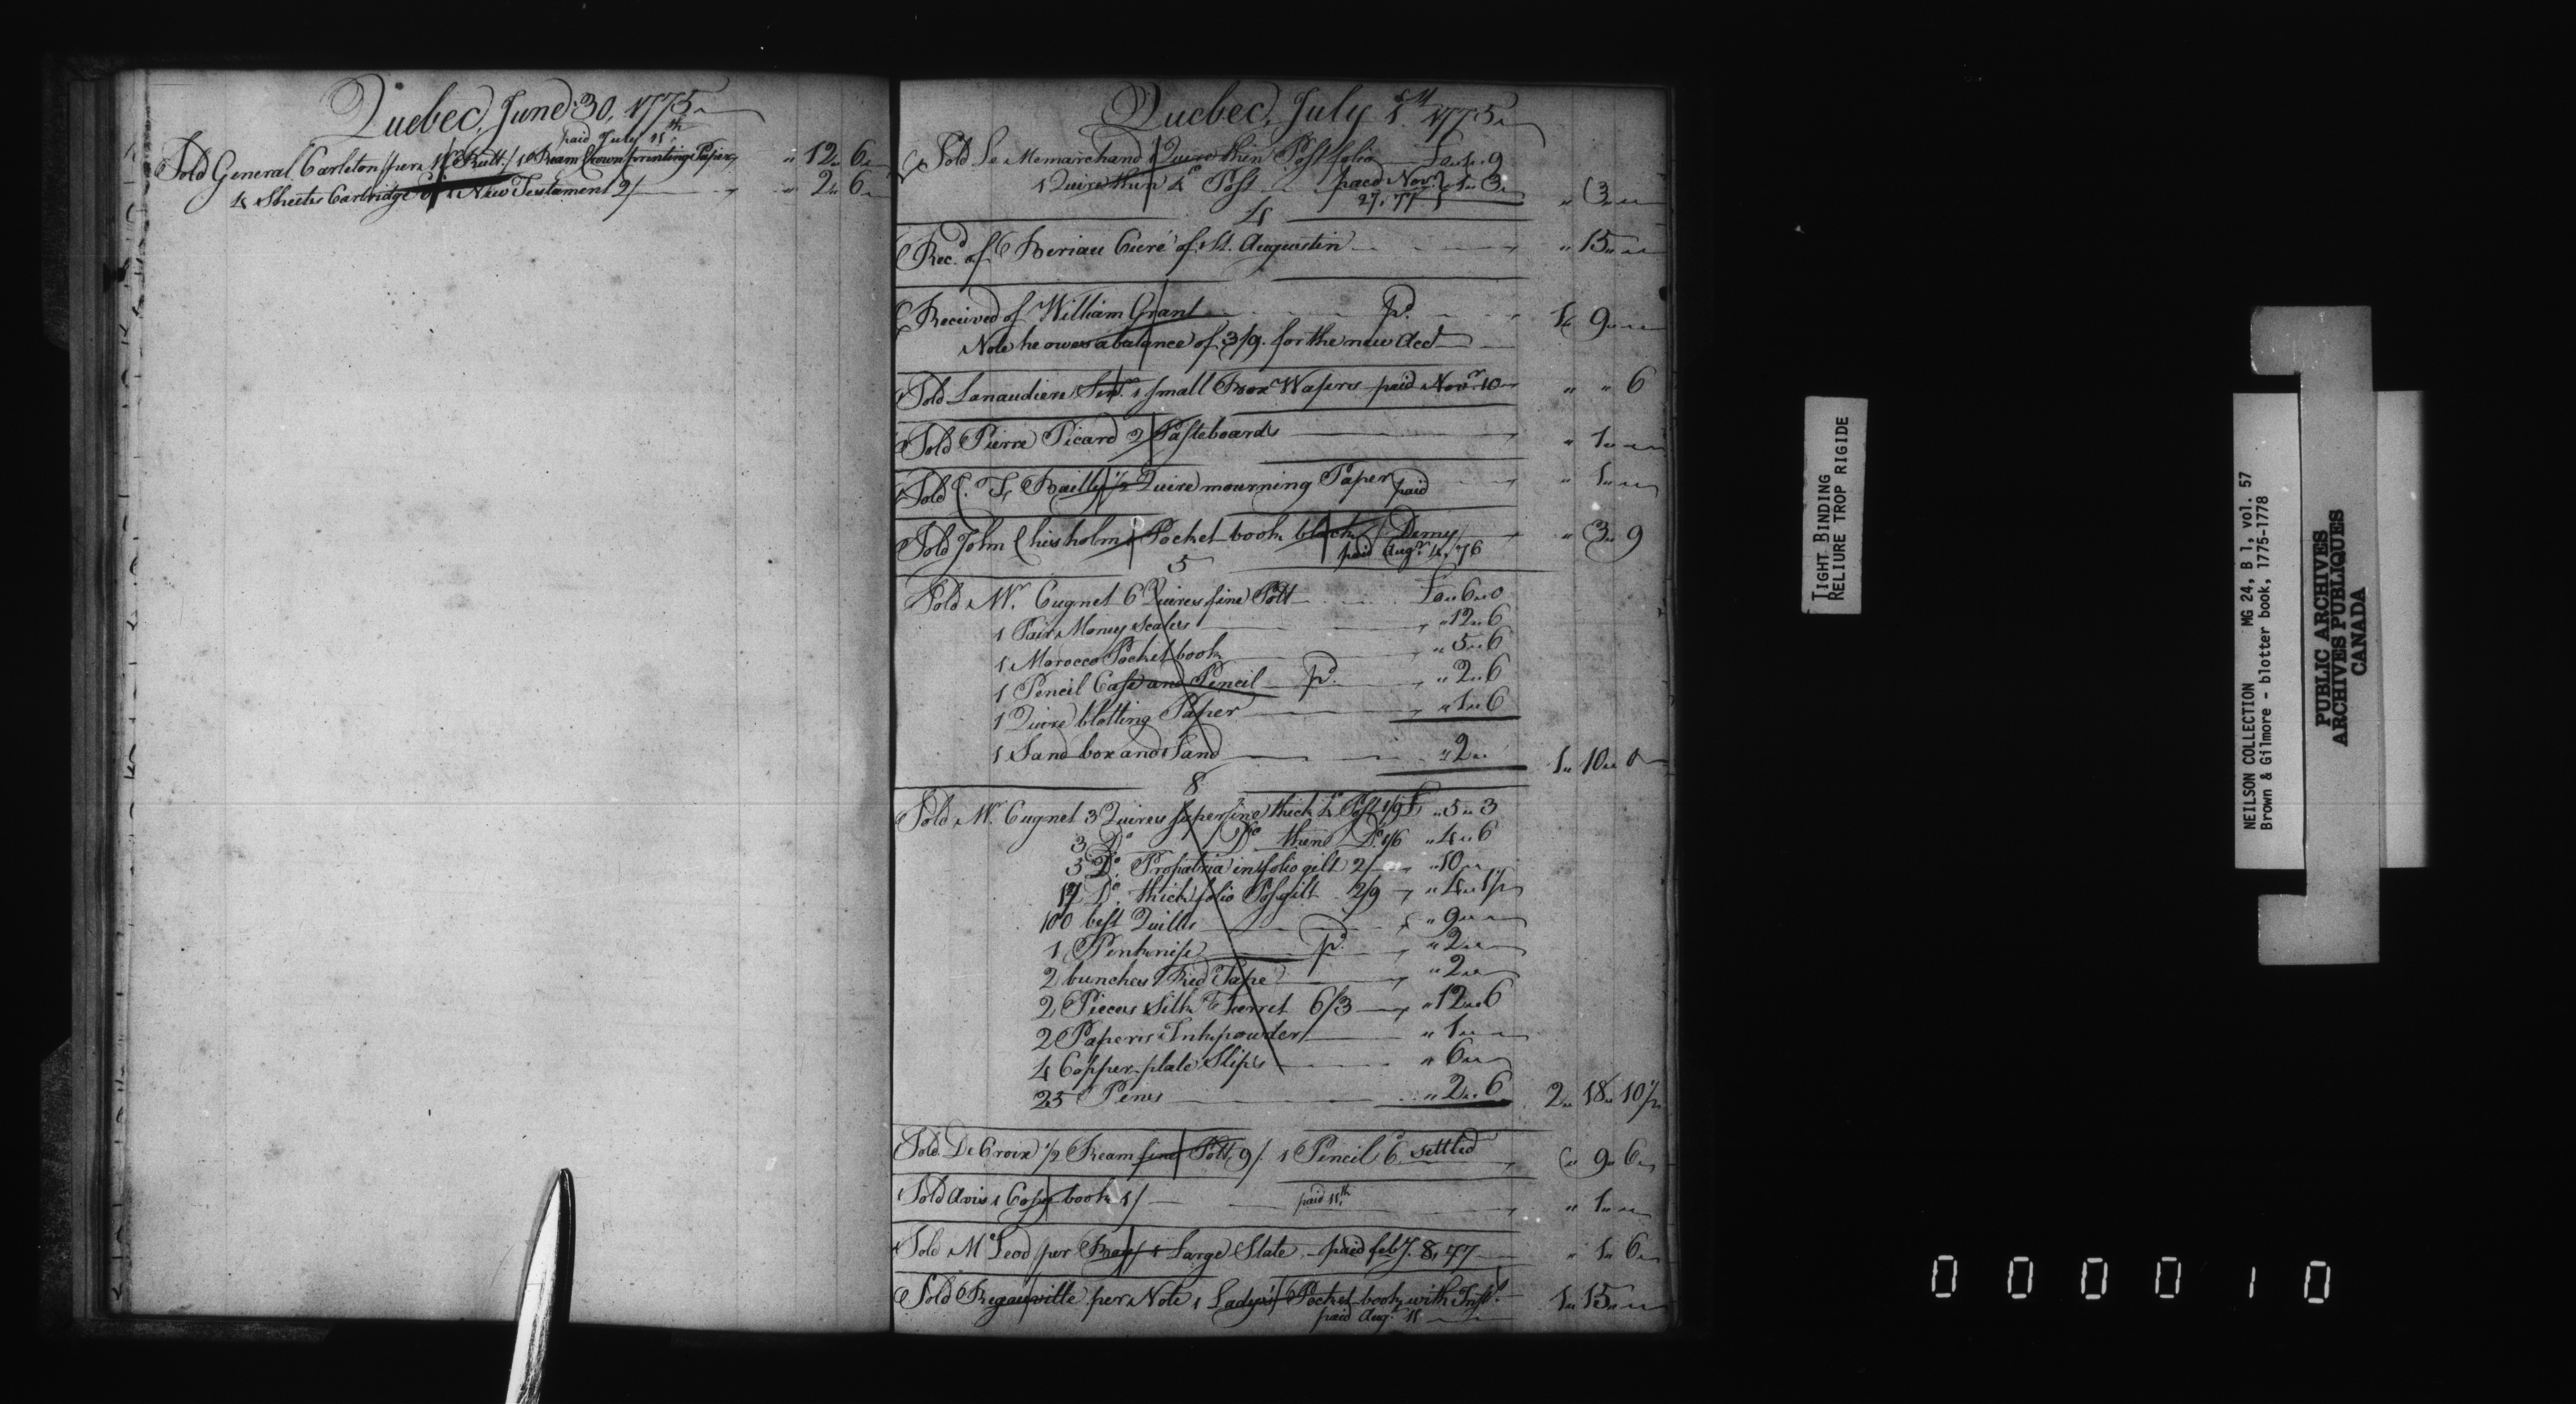 Quebec, June 30, 1775
paid July 11th
Sold General Carleton per 1 Ream Crown printing Paper, " 12 " 6
4 Sheets Cartridge 6d 1 New Testament 2/ " 2 " 6
Quebec, July 1st 1775
Sold Le Memarchand 1 Quire thin Post folio £0 " 1 " 9
1 Quire thin 4to Post paid Novr 1 " 3 " 3 " "
27, 77
4
Rec'd of Beriau Curé of St. Augustin " 15 " "
Received of William Grant pd. 1 " 9 " "
Note he owes a balance of 3/9. for the new Acct
Sold Lanaudiere Senr. 1 small Box Wafers paid Novr. 10 " " 6
Sold Pierre Picard 2 Pasteboards " 1 " "
Sold C. F. Bailly 1/2 Quire mourning Paper paid " 1 " "
Sold John Chisholm 1 Pocket book black Demy " 3 " 9
paid Augt. 4, 76
5
Sold Mr. Cugnet 6 Quires fine Pott £0 " 6 " 0
1 Pair Money Scales " 12 " 6
1 Morocco Pocket book " 5 " 6
1 Pencil Case and Pencil pd. " 2 " 6
1 Quire blotting Paper " 1 " 6
1 Sand box and Sand " 2 " " 1 " 10 " 0
8
Sold Mr. Cugnet 3 Quires superfine thick 4to Post 1/9 £ " 5 " 3
3 Do. Do thin Do. 1/6 " 4 " 6
5 Do. Propatria in folio gilt 2/ " 10 " "
Do. thick folio Post gilt 2/9 " 4 " 1 1/2
100 best Quills " 9 " "
1 Penknife pd. " 2 " "
2 bunches Red Tape " 2 " "
2 Pieces Silk Ferret 6/3 " 12 " 6
2 Papers Inkpowder " 1 " "
4 Copper-plate Slips " 6 " "
25 Pens " 2 " 6 2 " 18 " 10 1/2
Sold De Croix 1/2 Ream fine Pott 9/. 1 Pencil 6d. settled " 9 " 6
Sold Avis 1 Copy book 1/ paid 11th " 1 " "
Sold McLeod per Boy 1 Large Slate paid feby. 8, 77 " 1 " 6
Sold Regauville per Note 1 Lady's Pocket-book with Inst. 1 " 15 " "
paid Aug. 11
TIGHT BINDING
RELIURE TROP RIGIDE
NEILSON COLLECTION MG 24, B 1, vol. 57
Brown & Gilmore - blotter book, 1775-1778
PUBLIC ARCHIVES
ARCHIVES PUBLIQUES
CANADA
000010